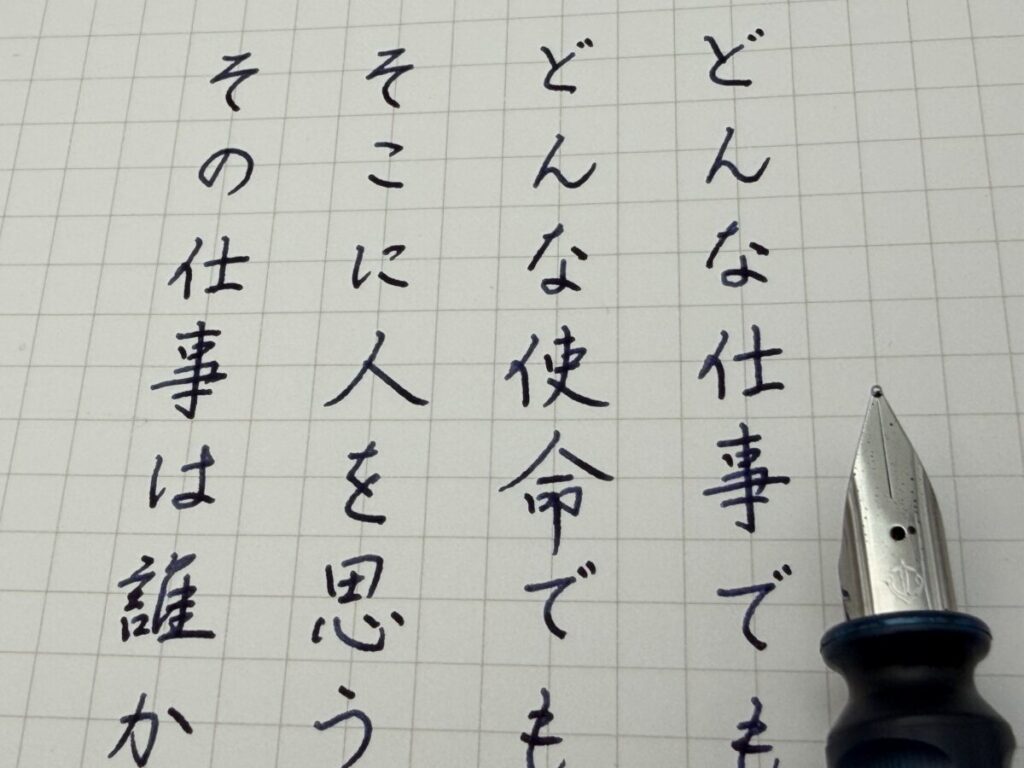 どんな仕事でも
どんな使命でも
そこに人を思う
その仕事は誰か